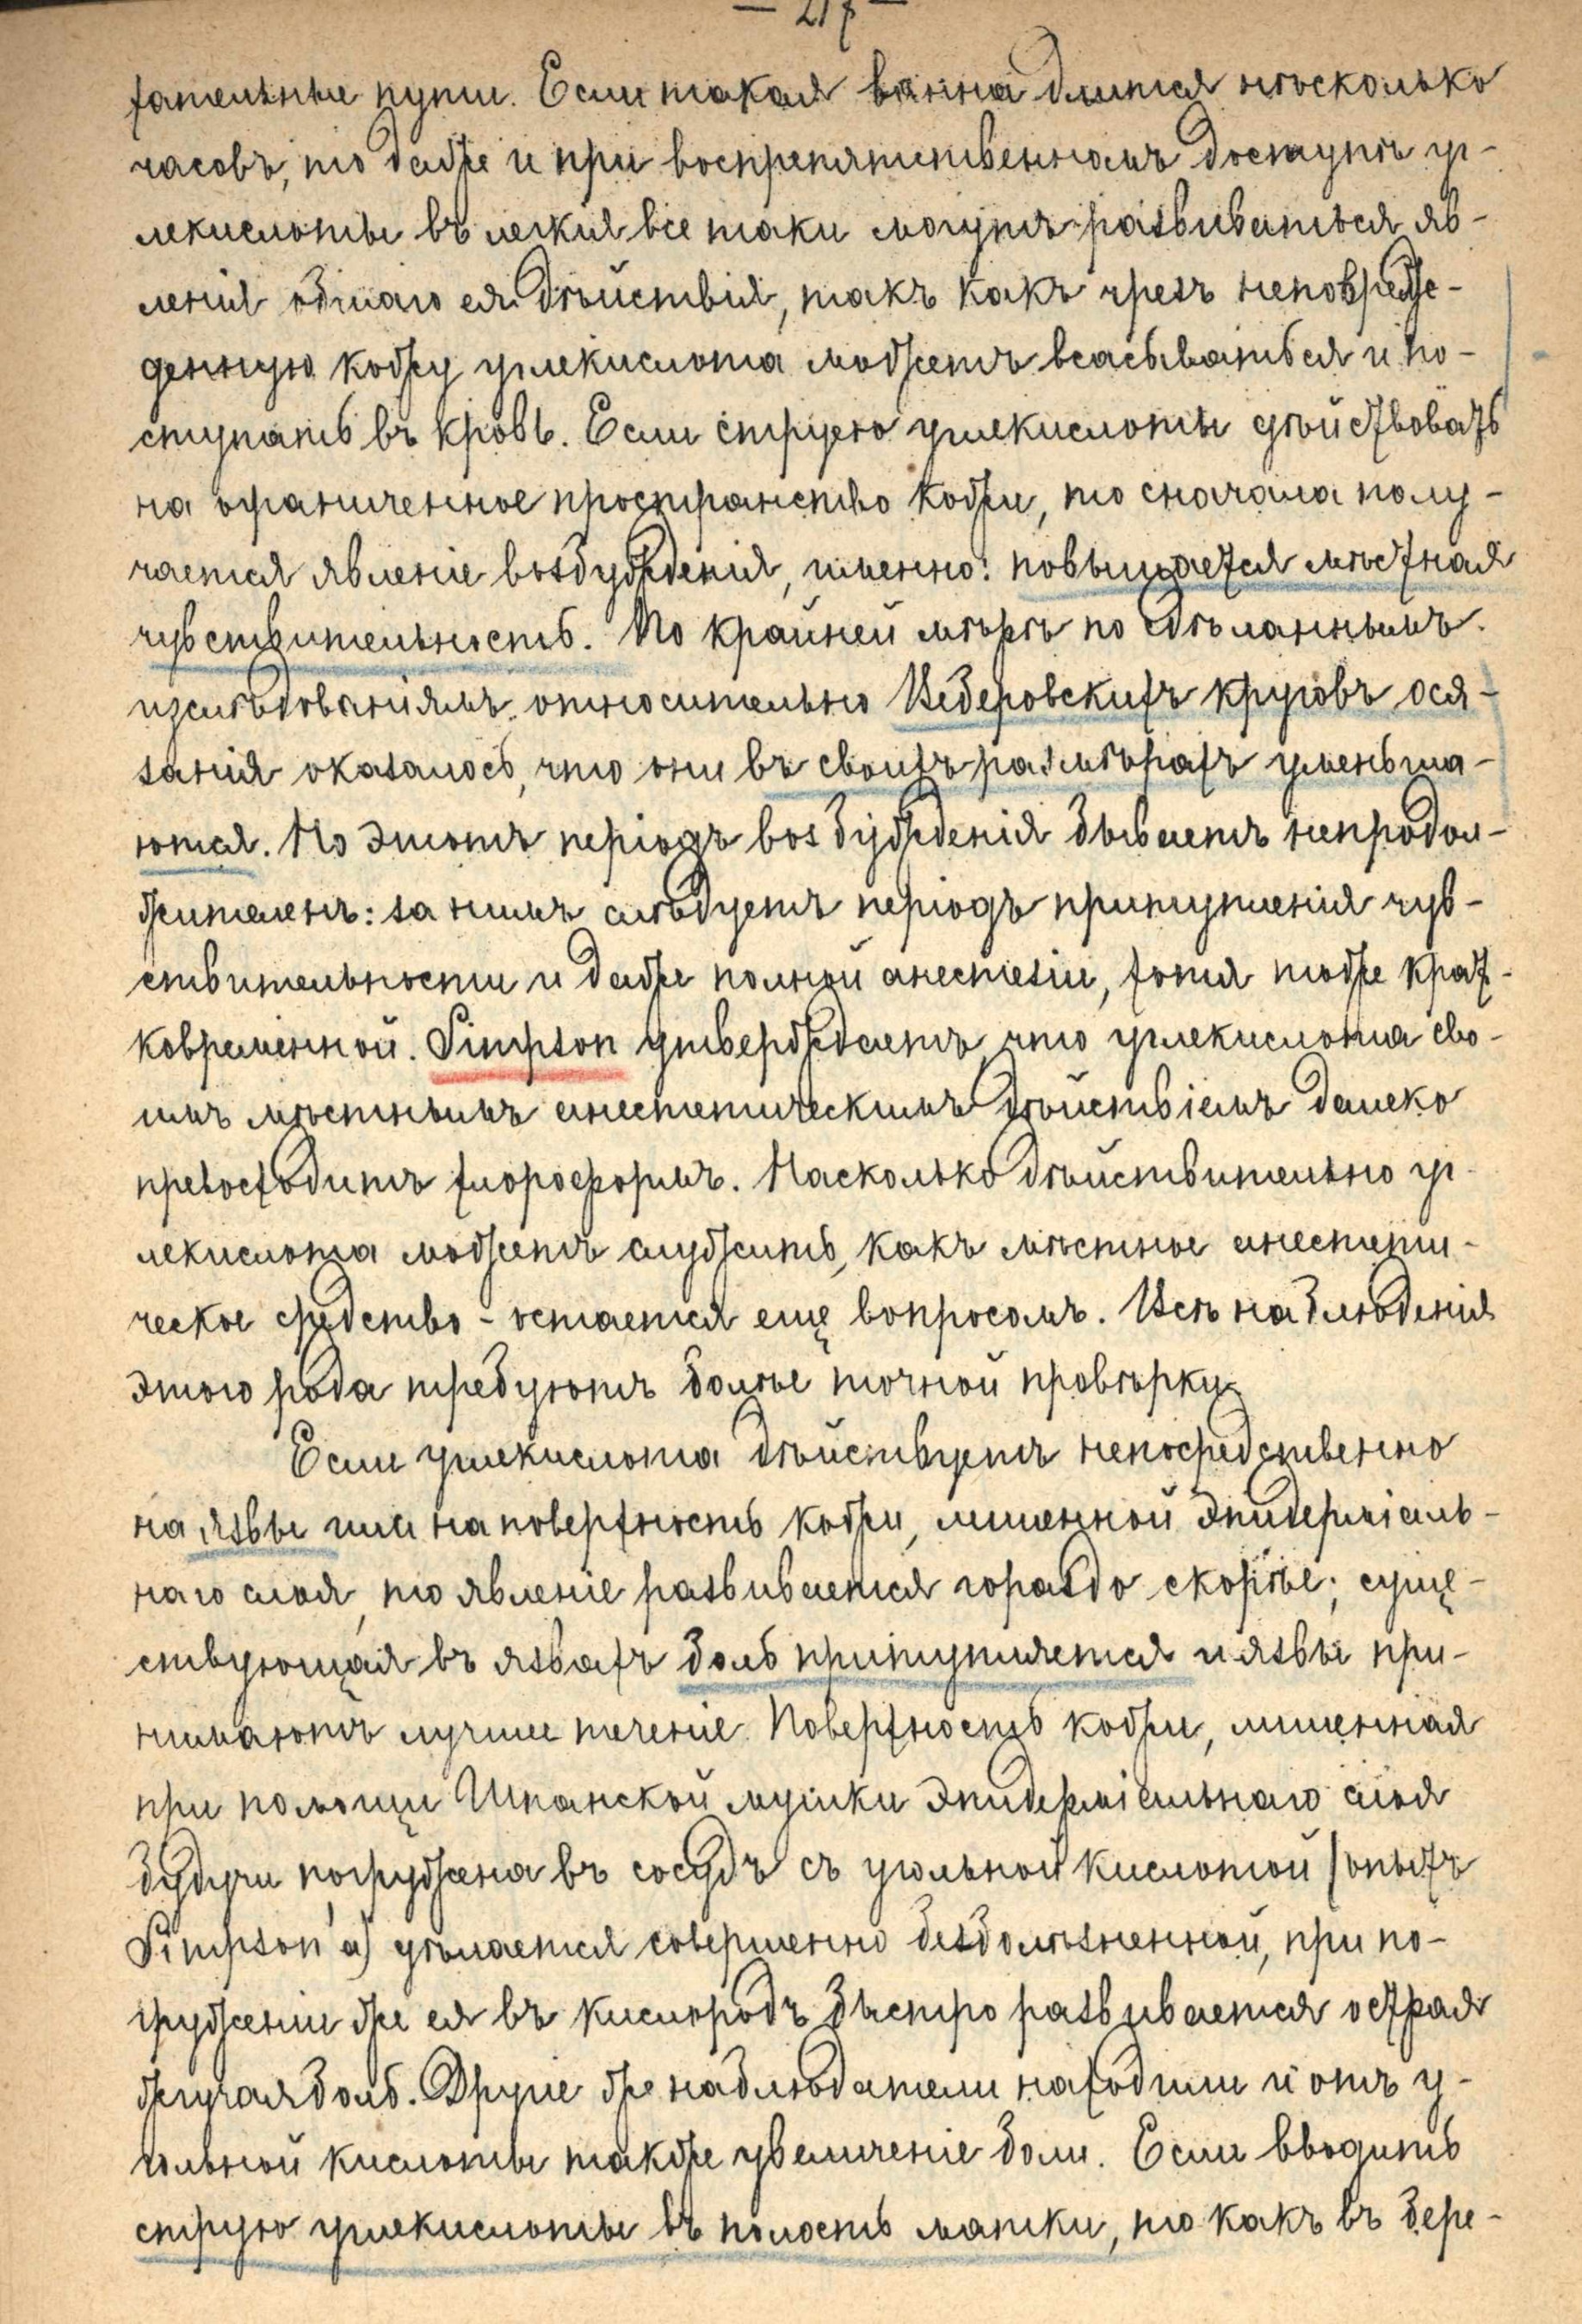 — 217 —
хательные пути. Если такая ванна длится нѣсколько
часовъ, то даже и при воспрепятственномъ доступѣ уг-
лекислоты въ легкія все таки могутъ развиваться яв-
ленія общаго ея дѣйствія, такъ какъ чрезъ неповреж-
денную кожу углекислота можетъ всасываться и по-
ступать въ кровь. Если струею углекислоты дѣйствовать
на ограниченное пространство кожи, то сначала полу-
чается явленіе возбужденія, именно: повышается мѣстная
чувствительность. По крайней мѣрѣ по сдѣланнымъ
изслѣдованіямъ относительно Веберовскихъ круговъ ося-
занія оказалось, что они въ своихъ размѣрахъ уменьша-
ются. Но этотъ періодъ возбужденія бываетъ непродол-
жителенъ: за нимъ слѣдуетъ періодъ притупленія чув-
ствительности и даже полной анестезіи, хотя тоже крат-
ковременной. Simpson утверждаетъ, что углекислота сво-
имъ мѣстнымъ анестетическимъ дѣйствіемъ далеко
превосходитъ хлороформъ. Насколько дѣйствительно уг-
лекислота можетъ служить, какъ мѣстное анестети-
ческое средство - остается еще вопросомъ. Всѣ наблюденія
этого рода требуютъ болѣе точной провѣрки.
Если углекислота дѣйствуетъ непосредственно
на язвы или на поверхность кожи, лишенной эпидерміаль-
наго слоя, то явленіе развивается гораздо скорѣе; суще-
ствующая въ язвахъ боль притупляется и язвы при-
нимаютъ лучшее теченіе. Поверхность кожи, лишенная
при помощи Шпанской мушки эпидерміальнаго слоя
будучи погружена въ сосудъ съ угольной кислотой (опытъ
Simpson'а) дѣлается совершенно безболѣзненной, при по-
груженіи же ея въ кислородъ быстро развивается острая
жгучая боль. Другіе же наблюдатели находили и отъ у-
гольной кислоты также увеличеніе боли. Если вводить
струю углекислоты въ полость матки, то какъ въ бере-